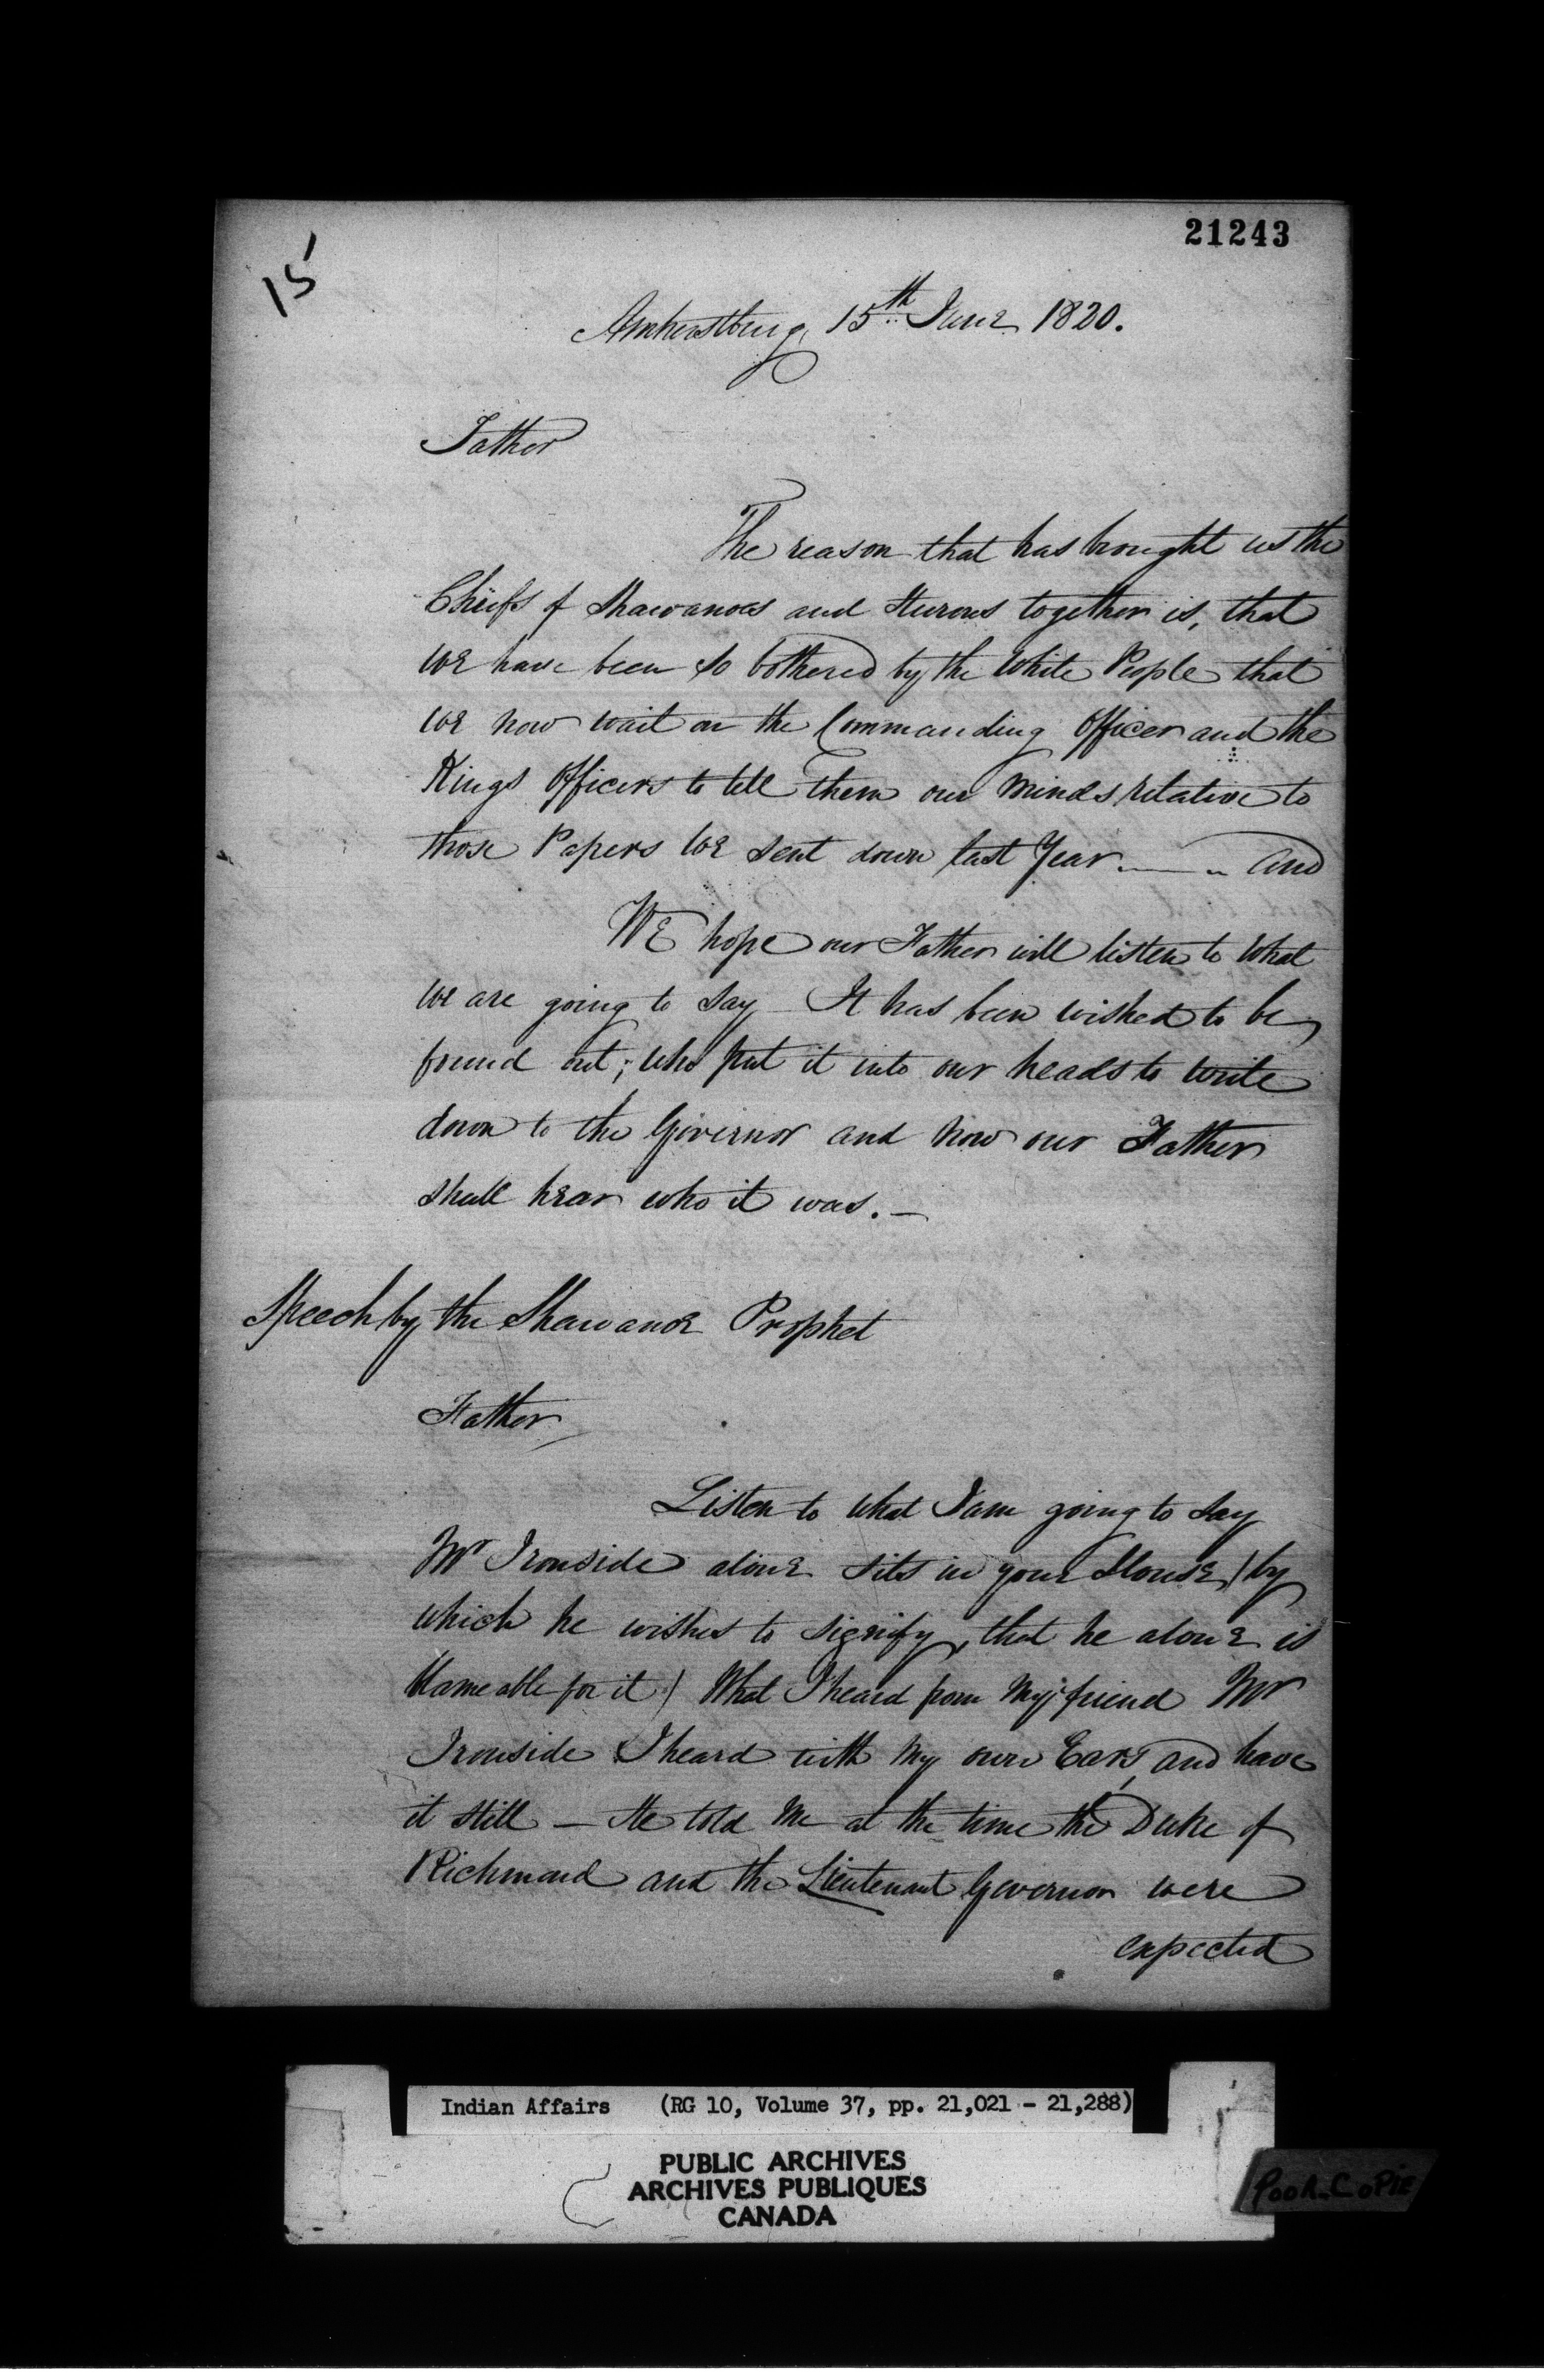 21243
15
Amherstburg, 15th June 1820.
Father
The reason that has brought us the
Chiefs of Shawanoes and Hurons together is, that
We have been so bothered by the White People that
we now wait on the Commanding Officer and the
Kings Officers to tell Them our minds relative to
those Papers We sent down last Year —— and
We hope our Father will listen to what
we are going to say It has been wished to be
found out; who put it into our heads to write
down to the Governor and now our Father
shall hear who it was. —
Speech by the Shawanoe Prophet
Father
Listen to what I am going to say
Mr Ironside alone sits in your House) by
which he wishes to signify, that he alone is
blameable for it) What I heard from My friend Mr
Ironside I heard with My own Ears, and have
it still — He told Me at the time the Duke of
Richmond and the Lieutenant Governor were
expected
Indian Affairs (RG 10, Volume 37, pp. 21,021 - 21,288)
PUBLIC ARCHIVES
ARCHIVES PUBLIQUES
CANADA
POOR COPIE